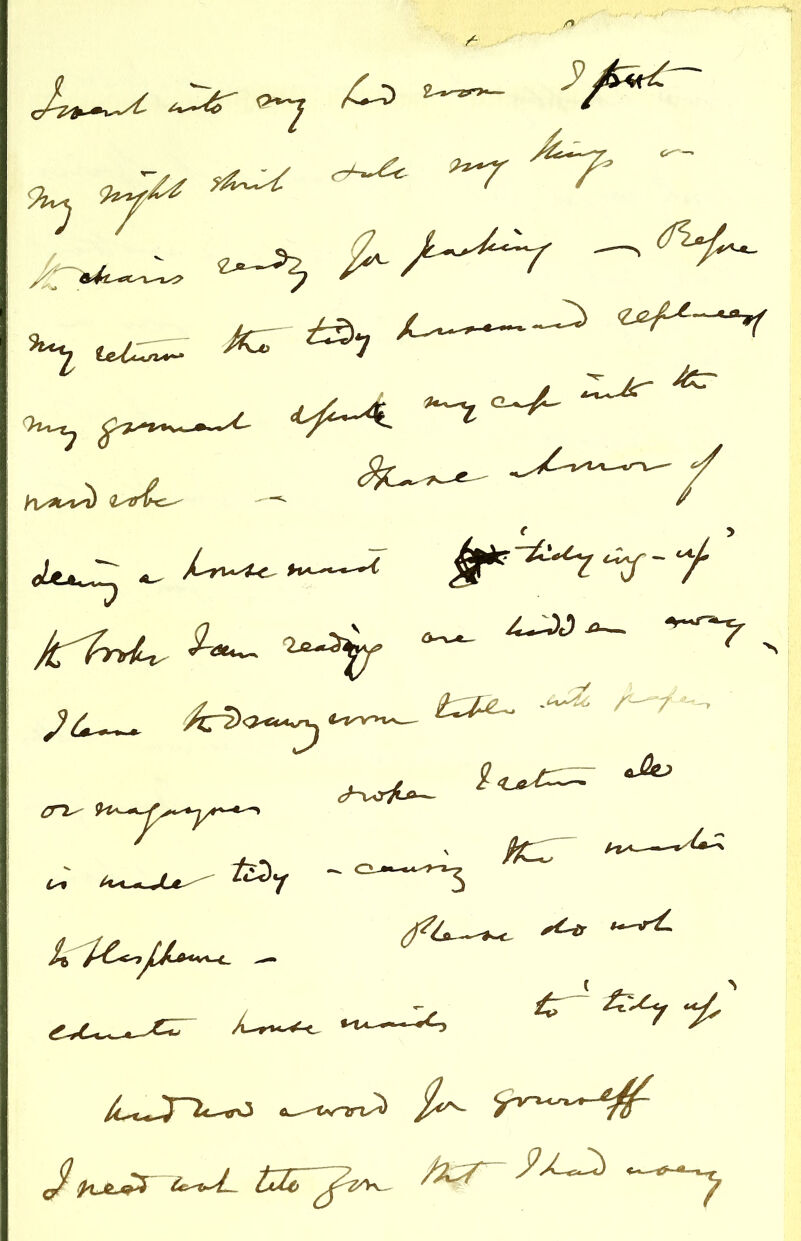 I went into my bed room I put
my night shirt & all my things on
the chairs ready for packing — Before
my return the tidy housemaid replaced
my garment & put my cap into the
wardrobe — I have a horror of
seeing a house maid 'tidying-up'
the books I am reading are hidden away -
I leave the drawing room table with papers
or magazines & broken
is made tidy - causing the master
to blaspheme — Please do not
educate house maids to 'tidy up'
And now a word for yourself
I need not tell you that I had a very